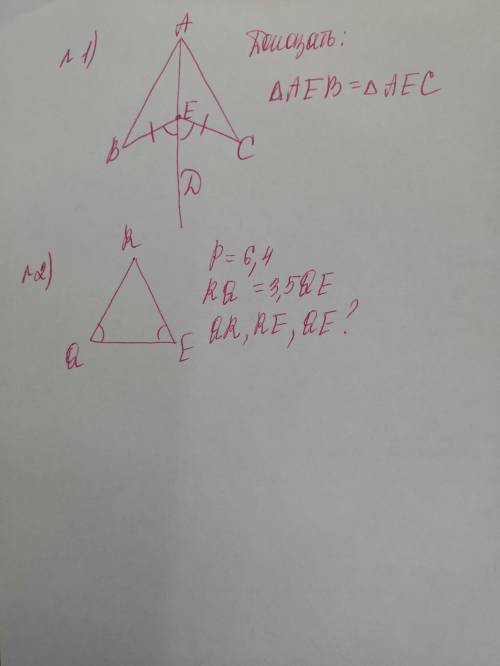 №1)
A
E
B
C
D
Доказать:
△AEB = △AEC
№2)
R
Q
E
P = 6,4
RQ = 3,5QE
QR, RE, QE?